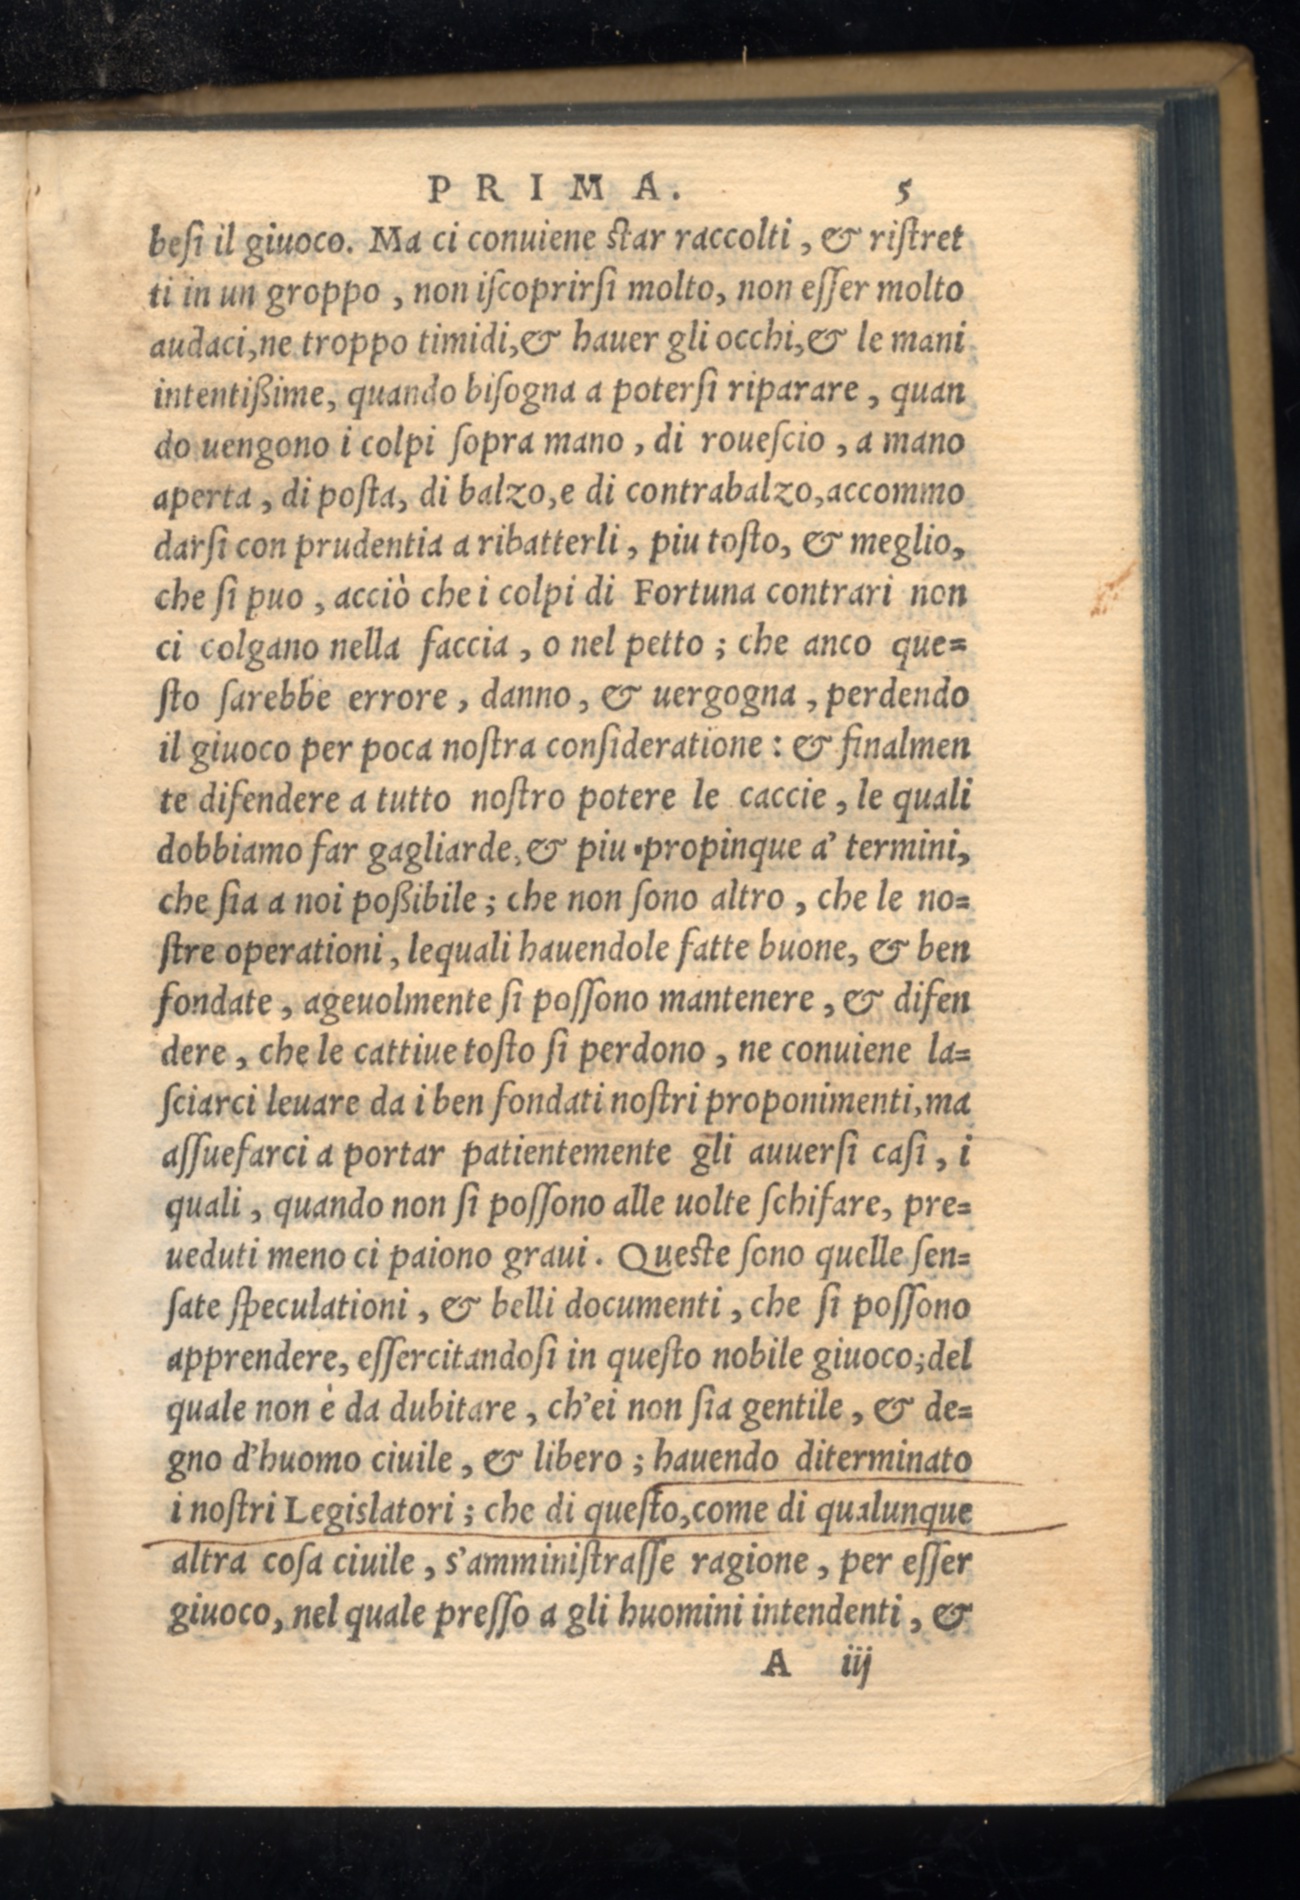 PRIMA. 5
beſi il giuoco. Ma ci conuiene ſtar raccolti, & riſtret
ti in un groppo, non iſcoprirſi molto, non eſſer molto
audaci, ne troppo timidi, & hauer gli occhi, & le mani
intentißime, quando biſogna a poterſi riparare, quan
do uengono i colpi ſopra mano, di roueſcio, a mano
aperta, di poſta, di balzo, e di contrabalzo, accommo
darſi con prudentia a ribatterli, piu toſto, & meglio,
che ſi puo, acciò che i colpi di Fortuna contrari non
ci colgano nella faccia, o nel petto; che anco que=
ſto ſarebbe errore, danno, & uergogna, perdendo
il giuoco per poca noſtra conſideratione: & finalmen
te difendere a tutto noſtro potere le caccie, le quali
dobbiamo far gagliarde, & piu propinque a' termini,
che ſia a noi poßibile; che non ſono altro, che le no=
ſtre operationi, lequali hauendole fatte buone, & ben
fondate, ageuolmente ſi poſſono mantenere, & difen
dere, che le cattiue toſto ſi perdono, ne conuiene la=
ſciarci leuare da i ben fondati noſtri proponimenti, ma
aſſuefarci a portar patientemente gli auuerſi caſi, i
quali, quando non ſi poſſono alle uolte ſchifare, pre=
ueduti meno ci paiono graui. Queſte ſono quelle ſen=
ſate ſpeculationi, & belli documenti, che ſi poſſono
apprendere, eſſercitandoſi in queſto nobile giuoco; del
quale non è da dubitare, ch'ei non ſia gentile, & de=
gno d'huomo ciuile, & libero; hauendo diterminato
i noſtri Legislatori; che di queſto, come di qualunque
altra coſa ciuile, s'amminiſtraſſe ragione, per eſſer
giuoco, nel quale preſſo a gli huomini intendenti, &
A iij